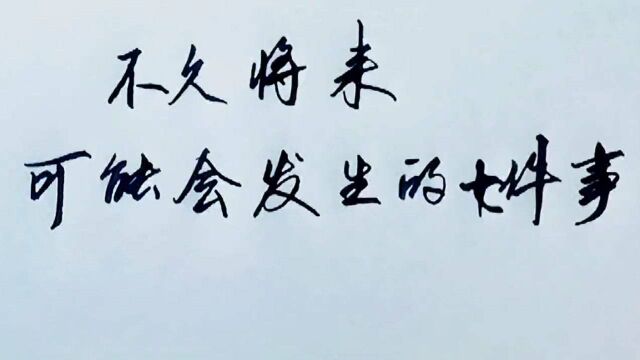 不久将来
可能会发生的七件事